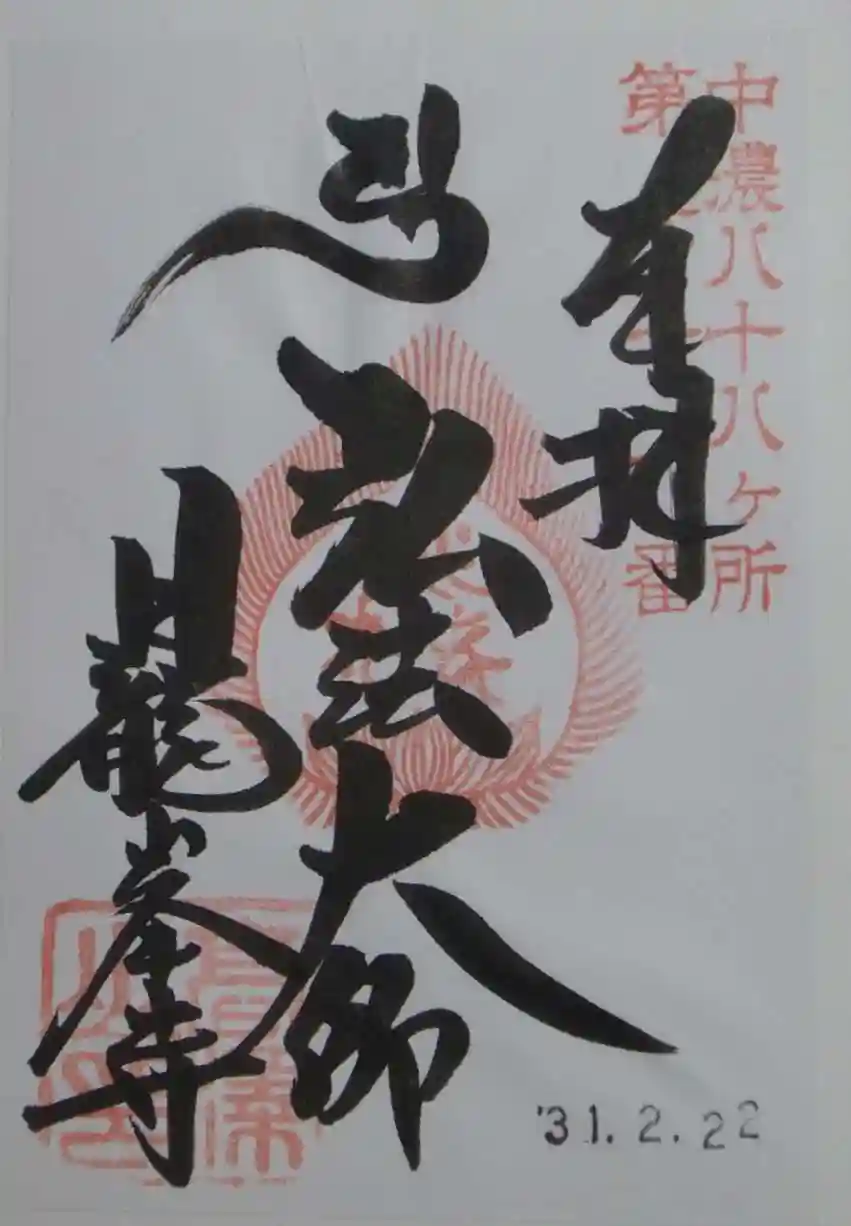 中濃八十八ヶ所
第 番
奉拝
弘法大師
日龍峯寺
'31.2.22